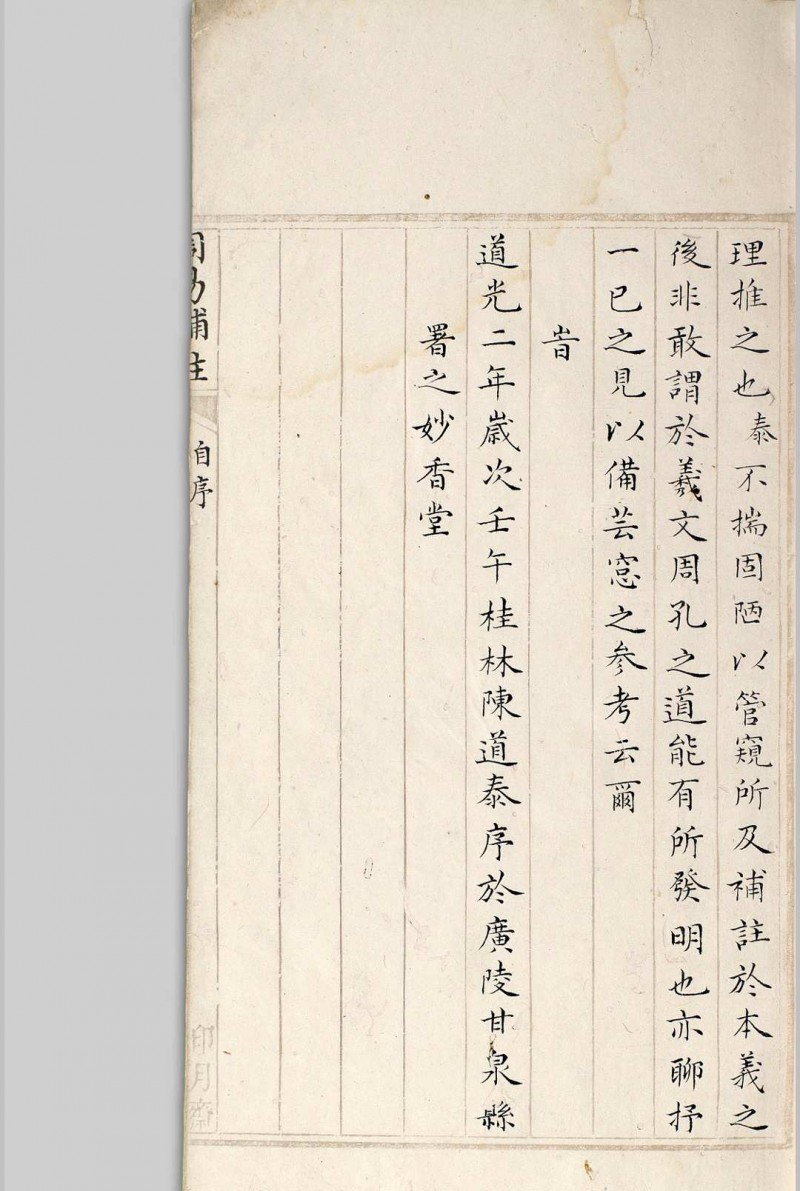 理推之也泰不揣固陋以管窺所及補註於本義之
後非敢謂於羲文周孔之道能有所發明也亦聊抒
一已之見以備芸窓之參考云爾
旹
道光二年歲次壬午桂林陳道泰序於廣陵甘泉縣
署之妙香堂
周易補註
自序
印月齋